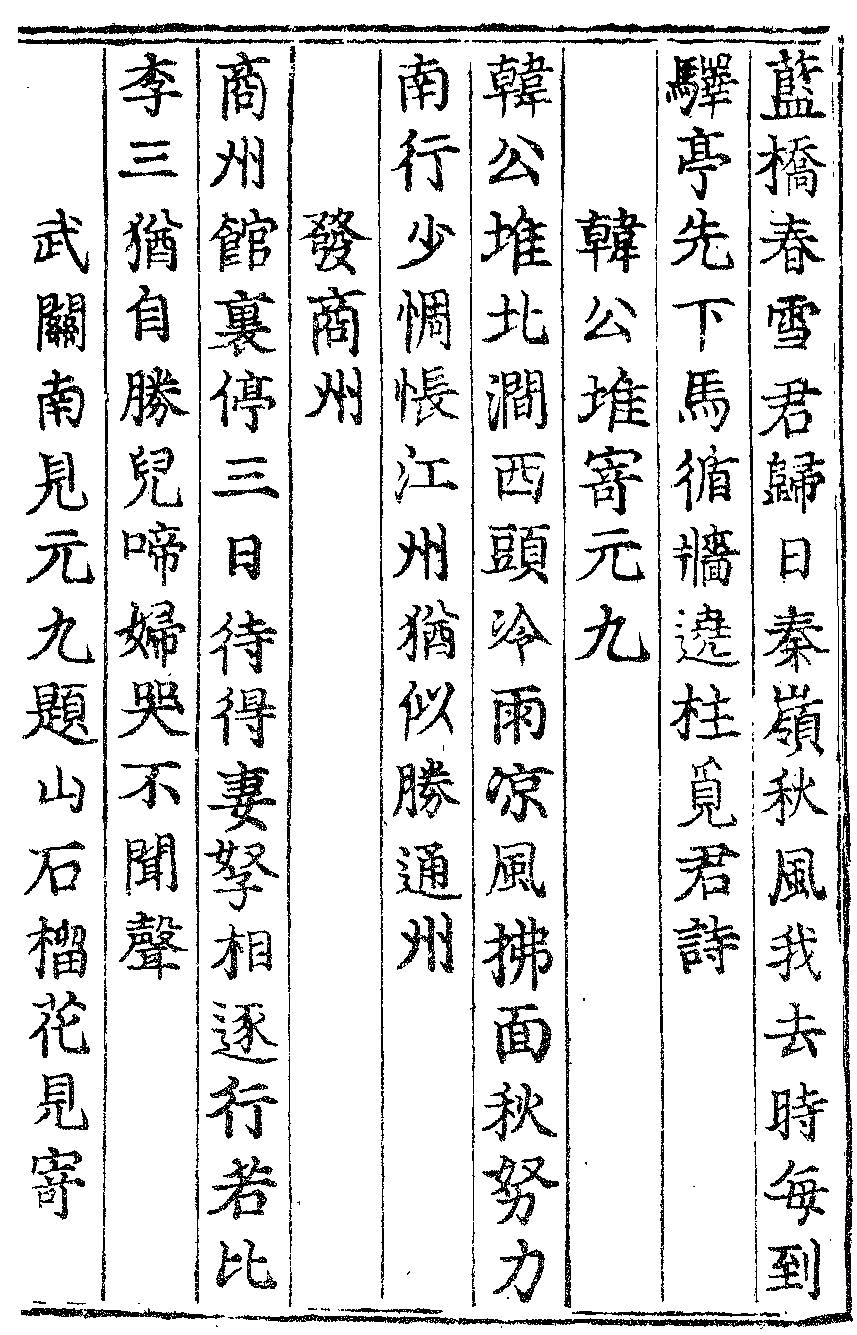 藍橋春雪君歸日秦嶺秋風我去時每到
驛亭先下馬循牆遶柱覓君詩
韓公堆寄元九
韓公堆北澗西頭冷雨凉風拂面秋努力
南行少惆悵江州猶似勝通州
發商州
商州館裏停三日待得妻孥相逐行若比
李三猶自勝兒啼婦哭不聞聲
武關南見元九題山石榴花見寄